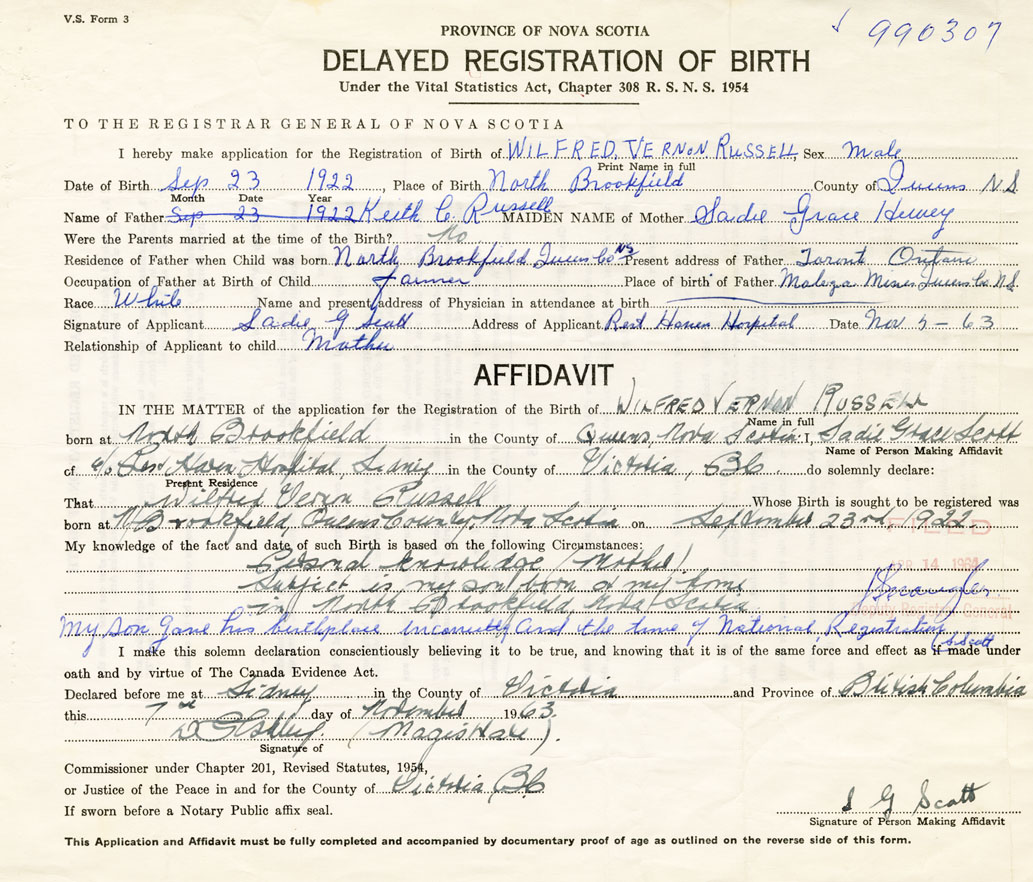 V.S. Form 3
990307
PROVINCE OF NOVA SCOTIA
DELAYED REGISTRATION OF BIRTH
Under the Vital Statistics Act, Chapter 308 R. S. N. S. 1954
TO THE REGISTRAR GENERAL OF NOVA SCOTIA
I hereby make application for the Registration of Birth of WILFRED VERNON RUSSELL, Sex Male
Print Name in full
Date of Birth Sep 23 1922, Place of Birth North Brookfield County of Queens N.S.
Month Date Year
Name of Father Sep 23 1922 Keith C. Russell MAIDEN NAME of Mother Sadie Grace Hewey
Were the Parents married at the time of the Birth? No
Residence of Father when Child was born North Brookfield Queens Co NS Present address of Father Toront Ontario
Occupation of Father at Birth of Child farmer Place of birth of Father Molega Mines Queens Co N.S.
Race White Name and present address of Physician in attendance at birth
Signature of Applicant Sadie G Scott Address of Applicant Rest Haven Hospital Date Nov 5 - 63
Relationship of Applicant to child Mother
AFFIDAVIT
IN THE MATTER of the application for the Registration of the Birth of WILFRED VERNON RUSSELL
Name in full
born at North Brookfield in the County of Queens, Nova Scotia: I, Sadie Grace Scott
Name of Person Making Affidavit
of c/o Rest Haven Hospital, Sidney in the County of Victoria, BC do solemnly declare:
Present Residence
That Wilfred Vernon Russell Whose Birth is sought to be registered was
born at N. Brookfield, Queens County, Nova Scotia on September 23rd, 1922
FILED
My knowledge of the fact and date of such Birth is based on the following Circumstances:
Personal knowledge (Mother)
14 1964
Subject is my son born at my home
in North Brookfield, Nova Scotia
Registrar General
My son gave his birthplace incorrectly and the time of National Registration
S. Scott
I make this solemn declaration conscientiously believing it to be true, and knowing that it is of the same force and effect as if made under
oath and by virtue of The Canada Evidence Act.
Declared before me at Sidney in the County of Victoria and Province of British Columbia
this 7th day of November 1963.
(Magistrate).
Signature of
Commissioner under Chapter 201, Revised Statutes, 1954,
or Justice of the Peace in and for the County of Victoria BC
If sworn before a Notary Public affix seal.
S G Scott
Signature of Person Making Affidavit
This Application and Affidavit must be fully completed and accompanied by documentary proof of age as outlined on the reverse side of this form.